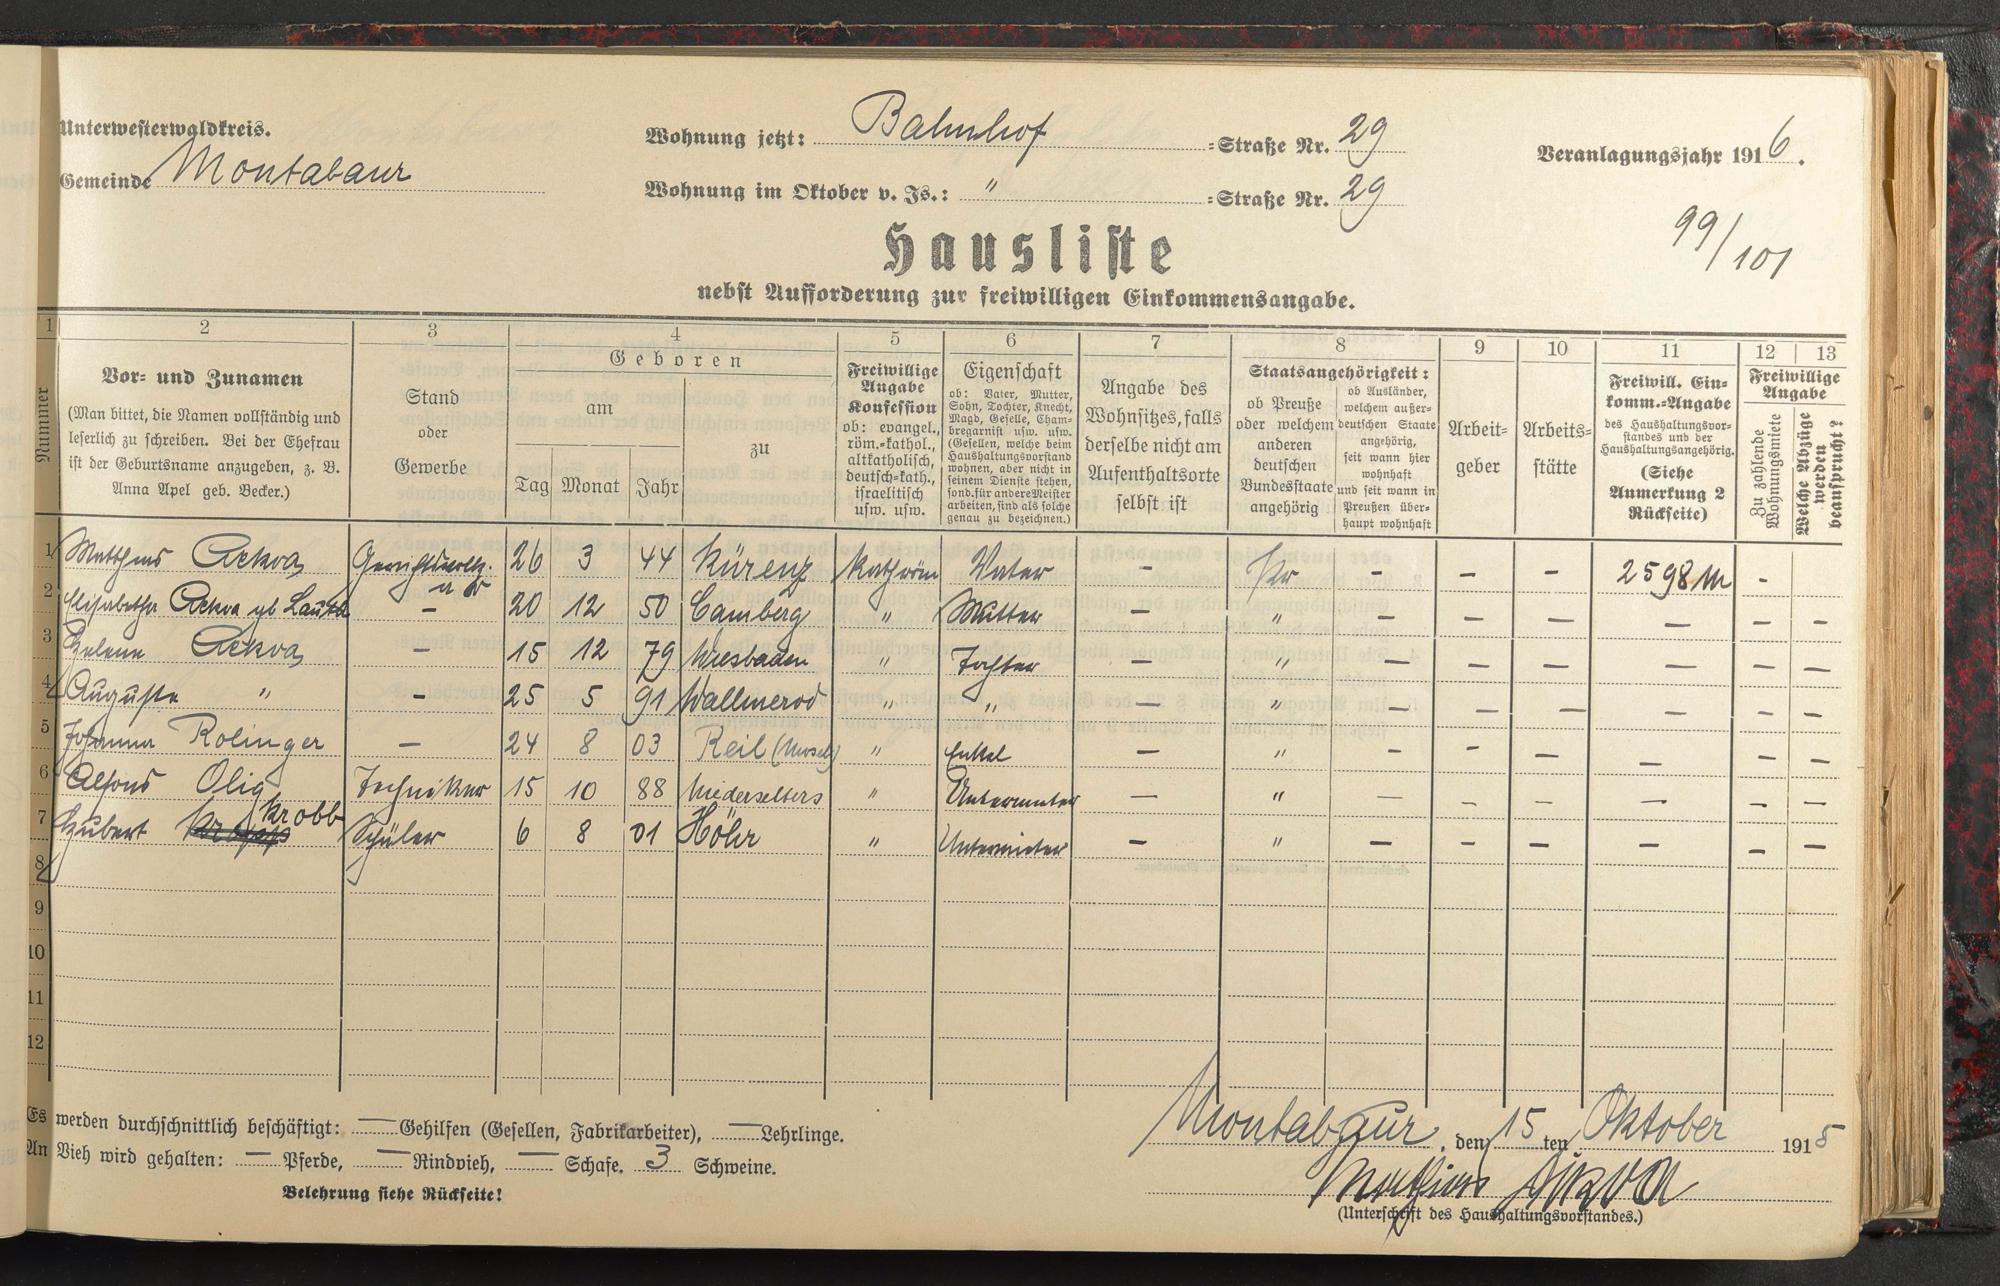 Unterwesterwaldkreis.
Gemeinde Montabaur
Wohnung jetzt: Bahnhof =Straße Nr. 29
Wohnung im Oktober v. Js.: " =Straße Nr. 29
Veranlagungsjahr 1916.
99/101
Hausliste
nebst Aufforderung zur freiwilligen Einkommensangabe.
1 2 3 4 5 6 7 8 9 10 11 12 13
Nummer
Vor- und Zunamen
(Man bittet, die Namen vollständig und
leserlich zu schreiben. Bei der Ehefrau
ist der Geburtsname anzugeben, z. B.
Anna Apel geb. Becker.)
Stand
oder
Gewerbe
Geboren
am
Tag Monat Jahr
zu
Freiwillige
Angabe
Konfession
ob: evangel.,
röm.-kathol.,
altkatholisch,
deutsch-kath.,
israelitisch
usw. usw.
Eigenschaft
ob: Vater, Mutter,
Sohn, Tochter, Knecht,
Magd, Geselle, Cham-
bregarnist usw. usw.
(Gesellen, welche beim
Haushaltungsvorstand
wohnen, aber nicht in
seinem Dienste stehen,
sond. für andere Meister
arbeiten, sind als solche
genau zu bezeichnen.)
Angabe des
Wohnsitzes, falls
derselbe nicht am
Aufenthaltsorte
selbst ist
Staatsangehörigkeit:
ob Preuße
oder welchem
anderen
deutschen
Bundesstaate
angehörig
ob Ausländer,
welchem außer-
deutschen Staate
angehörig,
seit wann hier
wohnhaft
und seit wann in
Preußen über-
haupt wohnhaft
Arbeit=
geber
Arbeits=
stätte
Freiwill. Ein-
komm.-Angabe
des Haushaltungsvor-
standes und der
Haushaltungsangehörig.
(Siehe
Anmerkung 2
Rückseite)
Freiwillige
Angabe
Zu zahlende
Wohnungsmiete
Welche Abzüge
werden
beansprucht?
1 Matthias Ackva Gerichtsvollz. a D 26 3 44 Kürenz Kath röm Vater - Pr - - - 2598 M -
2 Elisabetha Ackva gb Lauth - 20 12 50 Camberg " Mutter - " - - - - - -
3 Helene Ackva - 15 12 79 Wiesbaden " Tochter - " - - - - - -
4 Auguste " - 25 5 91 Wallmerod " " - " - - - - - -
5 Johanna Rolinger - 24 8 03 Reil (Mosel) " Enkel - " - - - - - -
6 Alfons Olig Techniker 15 10 88 Niederselters " Untermieter - " - - - - - -
7 Hubert Kropp Krobb Schüler 6 8 01 Höhr " Untermieter - " - - - - - -
8
9
10
11
12
Es werden durchschnittlich beschäftigt: — Gehilfen (Gesellen, Fabrikarbeiter), — Lehrlinge.
An Vieh wird gehalten: — Pferde, — Rindvieh, — Schafe. 3 Schweine.
Belehrung siehe Rückseite!
Montabaur, den 15 ten Oktober 1915
Mathias Ackva
(Unterschrift des Haushaltungsvorstandes.)